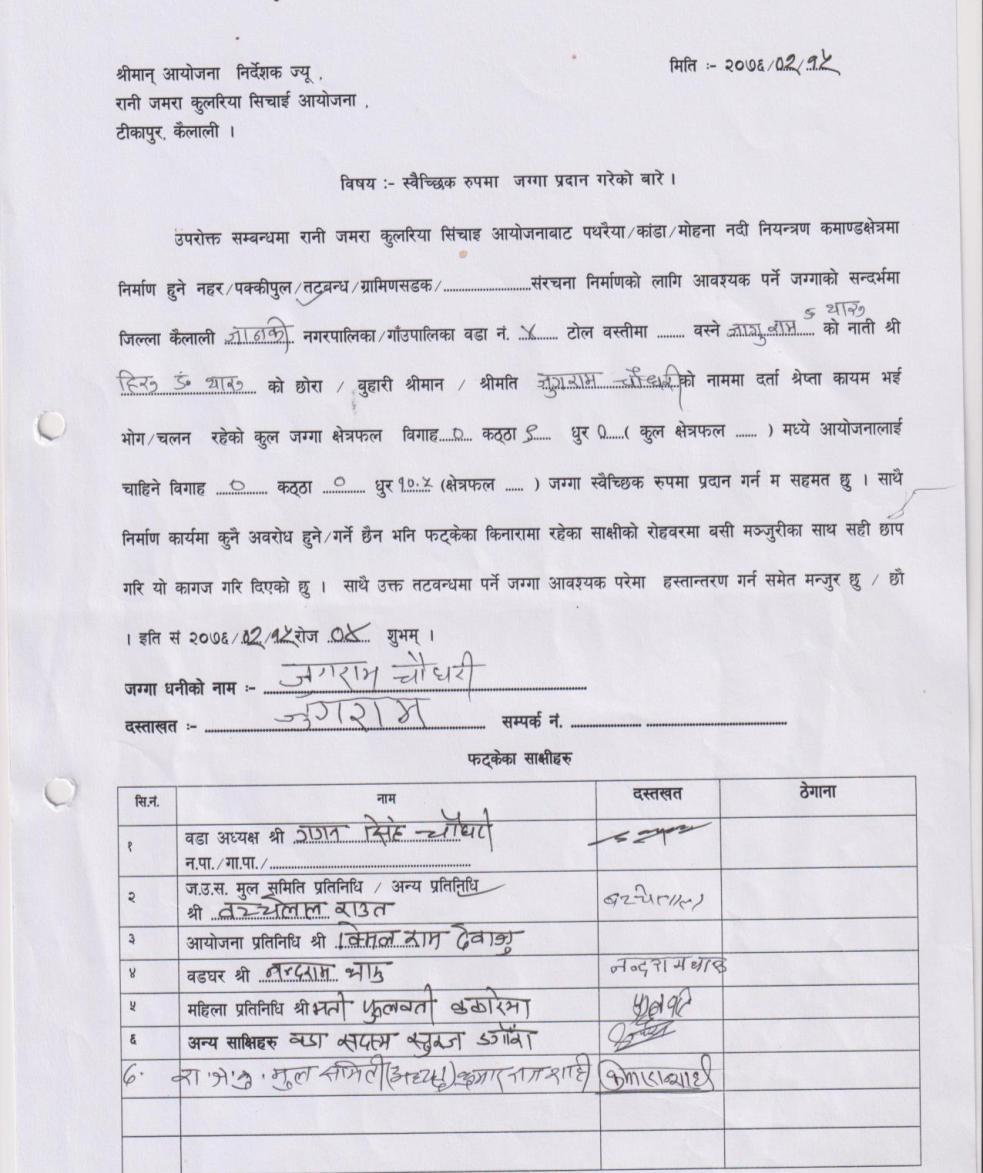 श्रीमान् आयोजना निर्देशक ज्यू ,
मिति :- २०७६/०२/१५
रानी जमरा कुलरिया सिचाई आयोजना ,
टीकापुर, कैलाली ।
विषय :- स्वैच्छिक रुपमा जग्गा प्रदान गरेको बारे ।
उपरोक्त सम्बन्धमा रानी जमरा कुलरिया सिंचाइ आयोजनावाट पथरैया/कांडा/मोहना नदी नियन्त्रण कमाण्डक्षेत्रमा
निर्माण हुने नहर/पक्कीपुल/तटबन्ध/ग्रामिणसडक/..............................संरचना निर्माणको लागि आवश्यक पर्ने जग्गाको सन्दर्भमा
जिल्ला कैलाली जानकी नगरपालिका/गाँउपालिका वडा नं. ४ टोल वस्तीमा ........ वस्ने जागु राम ड थारु को नाती श्री
हिरु डं थारु को छोरा / वुहारी श्रीमान / श्रीमति जुगराम चौधरी को नाममा दर्ता श्रेप्ता कायम भई
भोग/चलन रहेको कुल जग्गा क्षेत्रफल विगाह ० कठ्ठा ९ धुर ० ( कुल क्षेत्रफल ...... ) मध्ये आयोजनालाई
चाहिने विगाह ० कठ्ठा ० धुर १०.५ (क्षेत्रफल ..... ) जग्गा स्वैच्छिक रुपमा प्रदान गर्न म सहमत छु । साथै
निर्माण कार्यमा कुनै अवरोध हुने/गर्ने छैन भनि फट्केका किनारामा रहेका साक्षीको रोहवरमा बसी मञ्जुरीका साथ सही छाप
गरि यो कागज गरि दिएको छु । साथै उक्त तटवन्धमा पर्ने जग्गा आवश्यक परेमा हस्तान्तरण गर्न समेत मन्जुर छु / छौ
। इति सं २०७६/०२/१५ रोज ०४ शुभम् ।
जग्गा धनीको नाम :- जुगराम चौधरी
दस्ताखत :- जुगराम सम्पर्क नं. ....................
फट्केका साक्षीहरु
सि.नं. नाम दस्तखत ठेगाना
१ वडा अध्यक्ष श्री गगन सिंह चौधरी
न.पा./गा.पा./..................
२ ज.उ.स. मुल समिति प्रतिनिधि / अन्य प्रतिनिधि
श्री बच्चेलाल राउत बच्चेलाल
३ आयोजना प्रतिनिधि श्री बिमल राम देवाजु
४ वडघर श्री नन्दराम थारु नन्दराम थारु
५ महिला प्रतिनिधि श्रीमती फुलवती फुलवती
६ अन्य साक्षिहरु वडा सदस्य डगौंरा
रा.ज.कु. मुल समिती (अध्यक्ष)